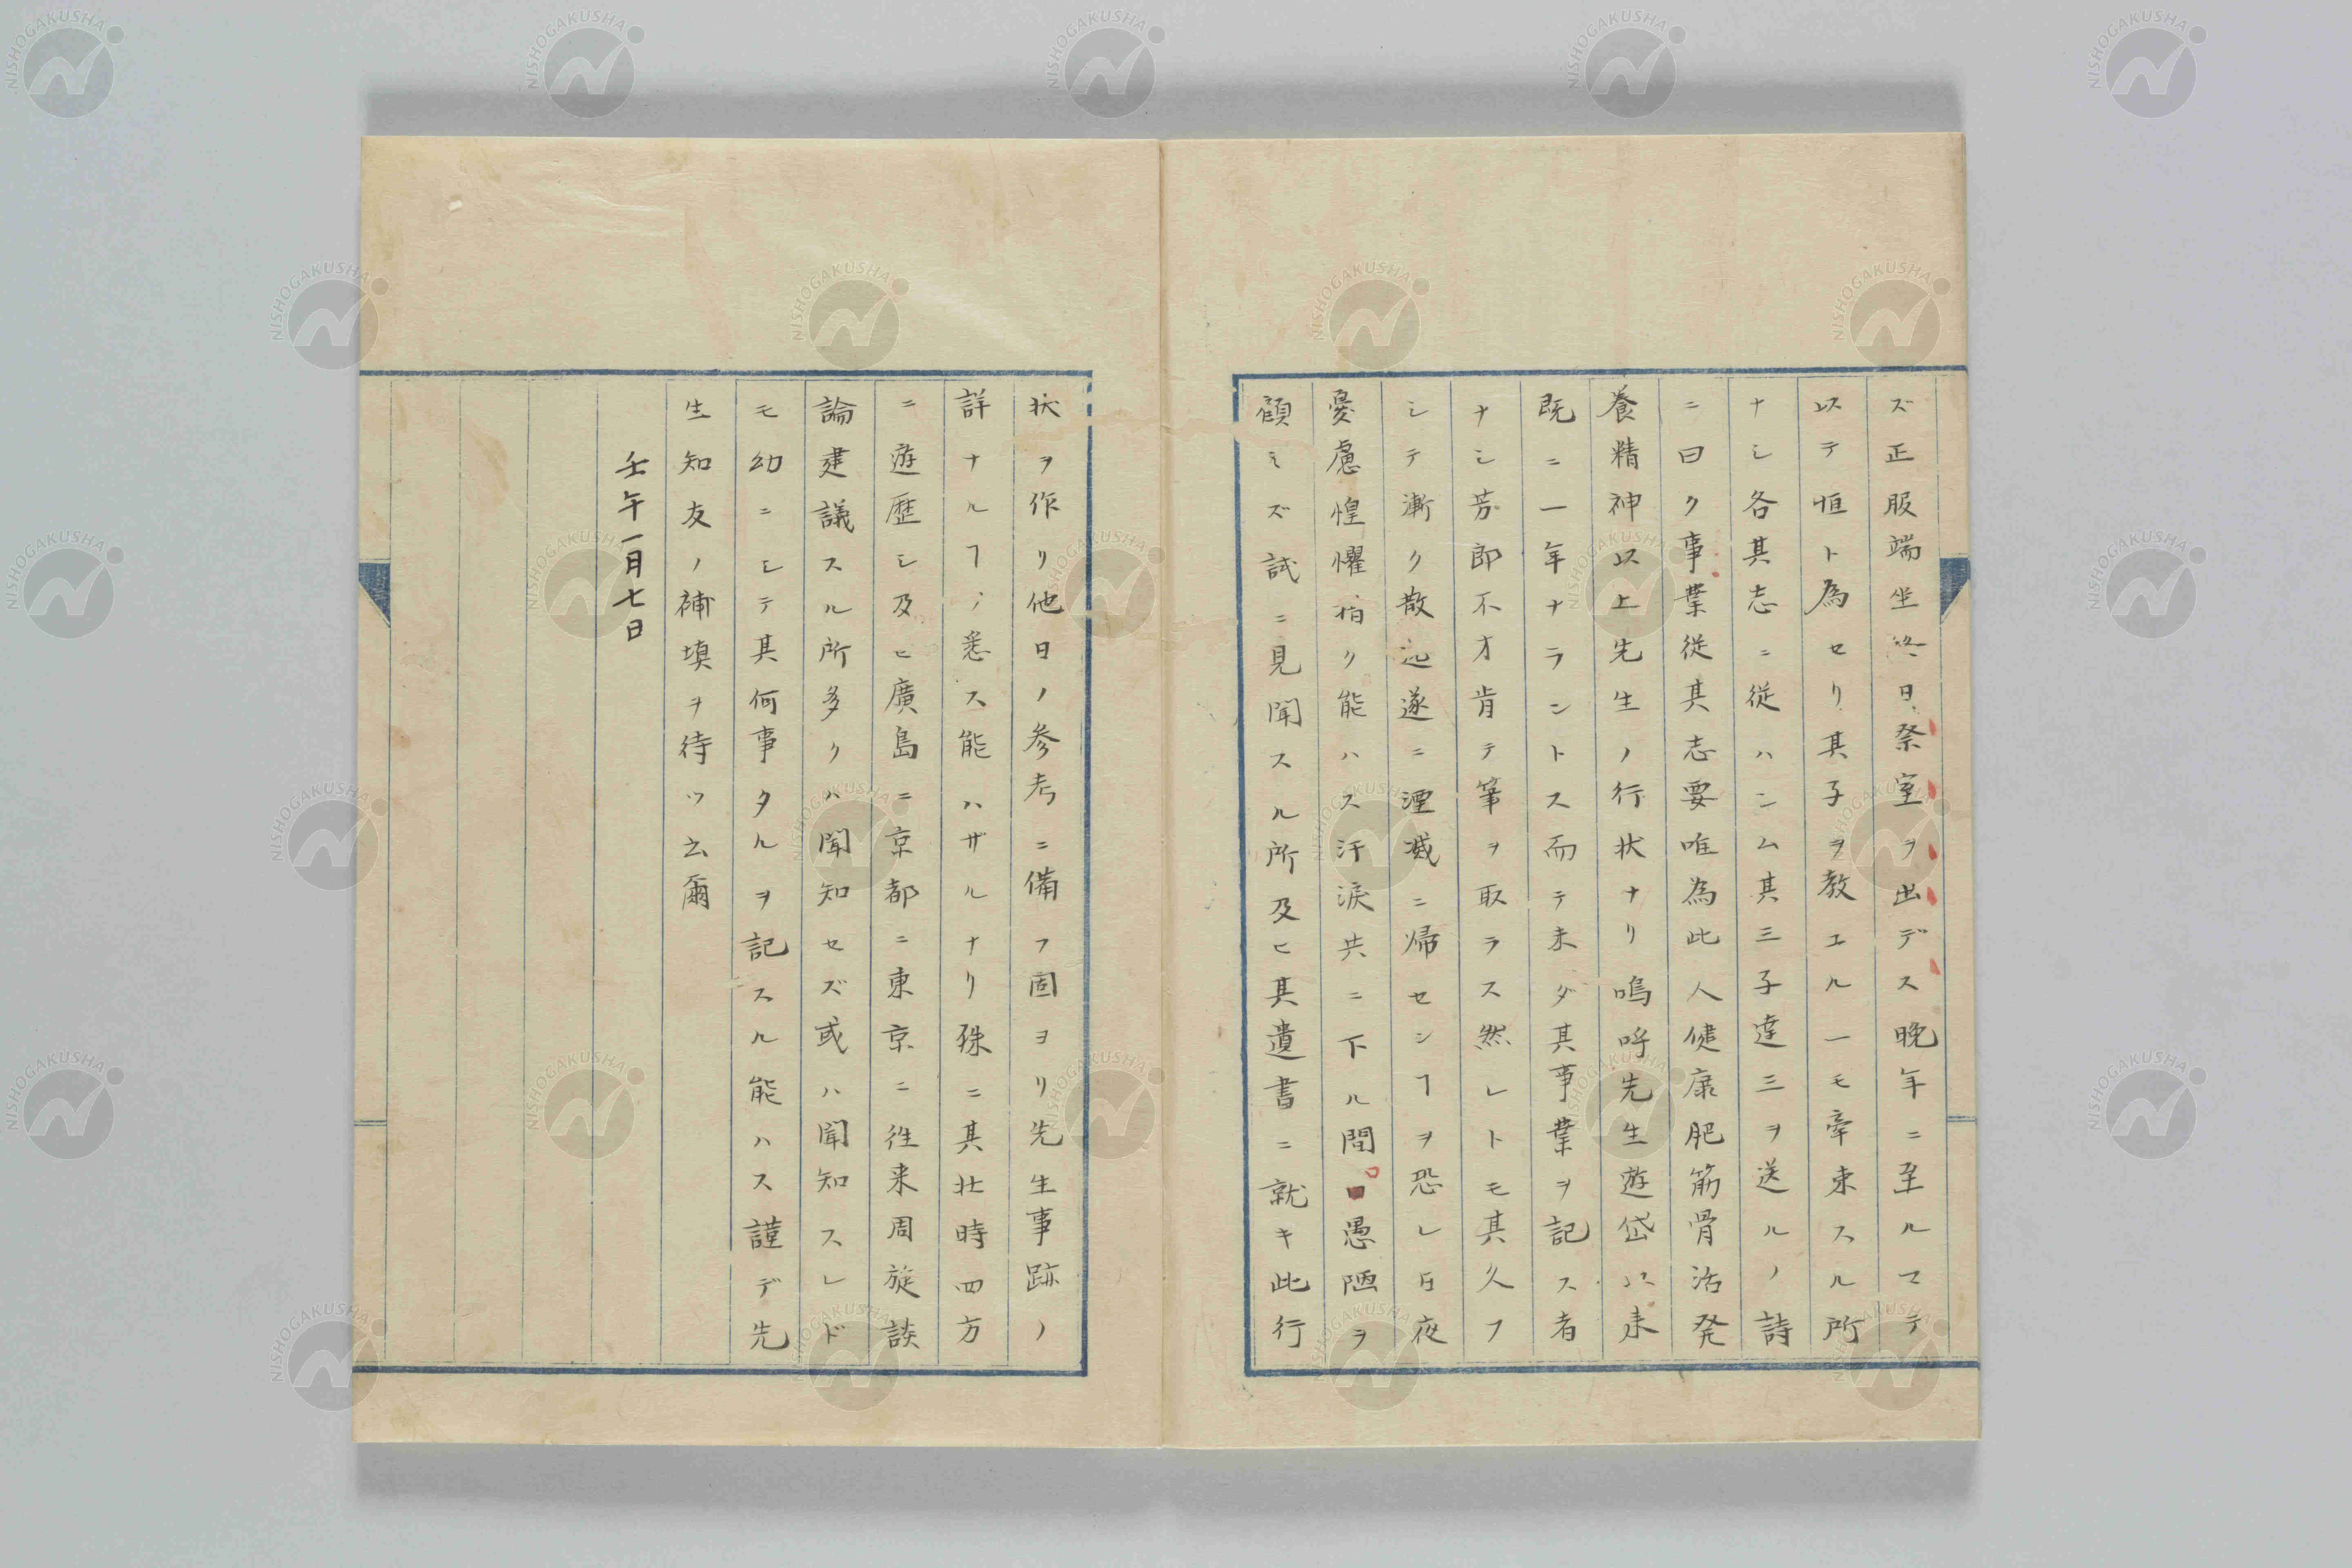 ズ正服端坐終日祭室ヲ出デス晩年ニ至ルマテ
以テ恒ト為セリ其子ヲ教エル一モ牽束スル所
ナシ各其志ニ従ハシム其三子達三ヲ送ルノ詩
ニ曰ク事業従其志要唯為此人健康肥筋骨活発
養精神以上先生ノ行状ナリ嗚呼先生遊岱以来
既ニ一年ナラントス而テ未ダ其事業ヲ記ス者
ナシ芳郎不才肯テ筆ヲ取ラス然レトモ其久フ
シテ漸ク散逸遂ニ湮滅ニ帰センヿヲ恐レ日夜
憂慮惶懼措ク能ハス汗涙共ニ下ル間愚陋ヲ
顧ミズ試ニ見聞スル所及ヒ其遺書ニ就キ此行
状ヲ作リ他日ノ参考ニ備フ固ヨリ先生事跡ノ
詳ナルヿハ悉ス能ハザルナリ殊ニ其壮時四方
ニ遊歴シ及ヒ廣島ニ京都ニ東京ニ往来周旋談
論建議スル所多クハ聞知セズ或ハ聞知スレド
モ幼ニシテ其何事タルヲ記スル能ハス謹デ先
生知友ノ補塡ヲ待ツ云爾
壬午一月七日
NISHOGAKUSHA